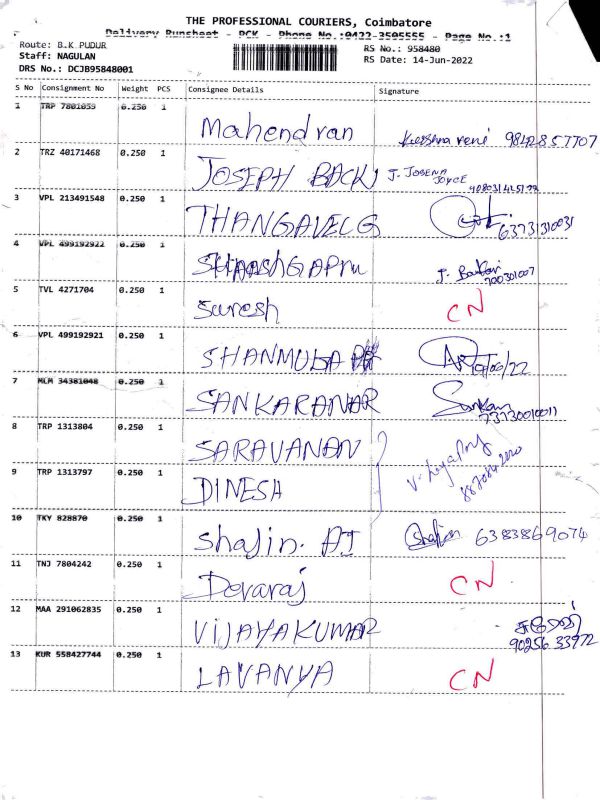 THE PROFESSIONAL COURIERS, Coimbatore
Delivery Runsheet - PCK - Phone No.:0422-3505555 - Page No.:1
Route: B.K PUDUR
RS No.: 958480
Staff: NAGULAN
RS Date: 14-Jun-2022
DRS No.: DCJB95848001
S No Consignment No Weight PCS Consignee Details Signature
1 TRP 7801059 0.250 1
Mahendran 9842857707
2 TRZ 40171468 0.250 1
JOSEPH J. JOBENA
JOYCE
3 VPL 213491548 0.250 1
THANGAVELG 6373131003
4 VPL 499192922 0.250 1
700301007
5 TVL 4271704 0.250 1
Suresh CN
6 VPL 499192921 0.250 1
SHANMUGA
7 MLM 34381048 0.250 1
SANKARANAR Sankar
73730010011
8 TRP 1313804 0.250 1
SARAVANAN
9 TRP 1313797 0.250 1
DINESH
10 TKY 828870 0.250 1
Shajin. AJ Shajin 6383869074
11 TNJ 7804242 0.250 1
Devaraj CN
12 MAA 291062835 0.250 1
VIJAYAKUMAR
90256 33972
13 KUR 558427744 0.250 1
LAVANYA CN